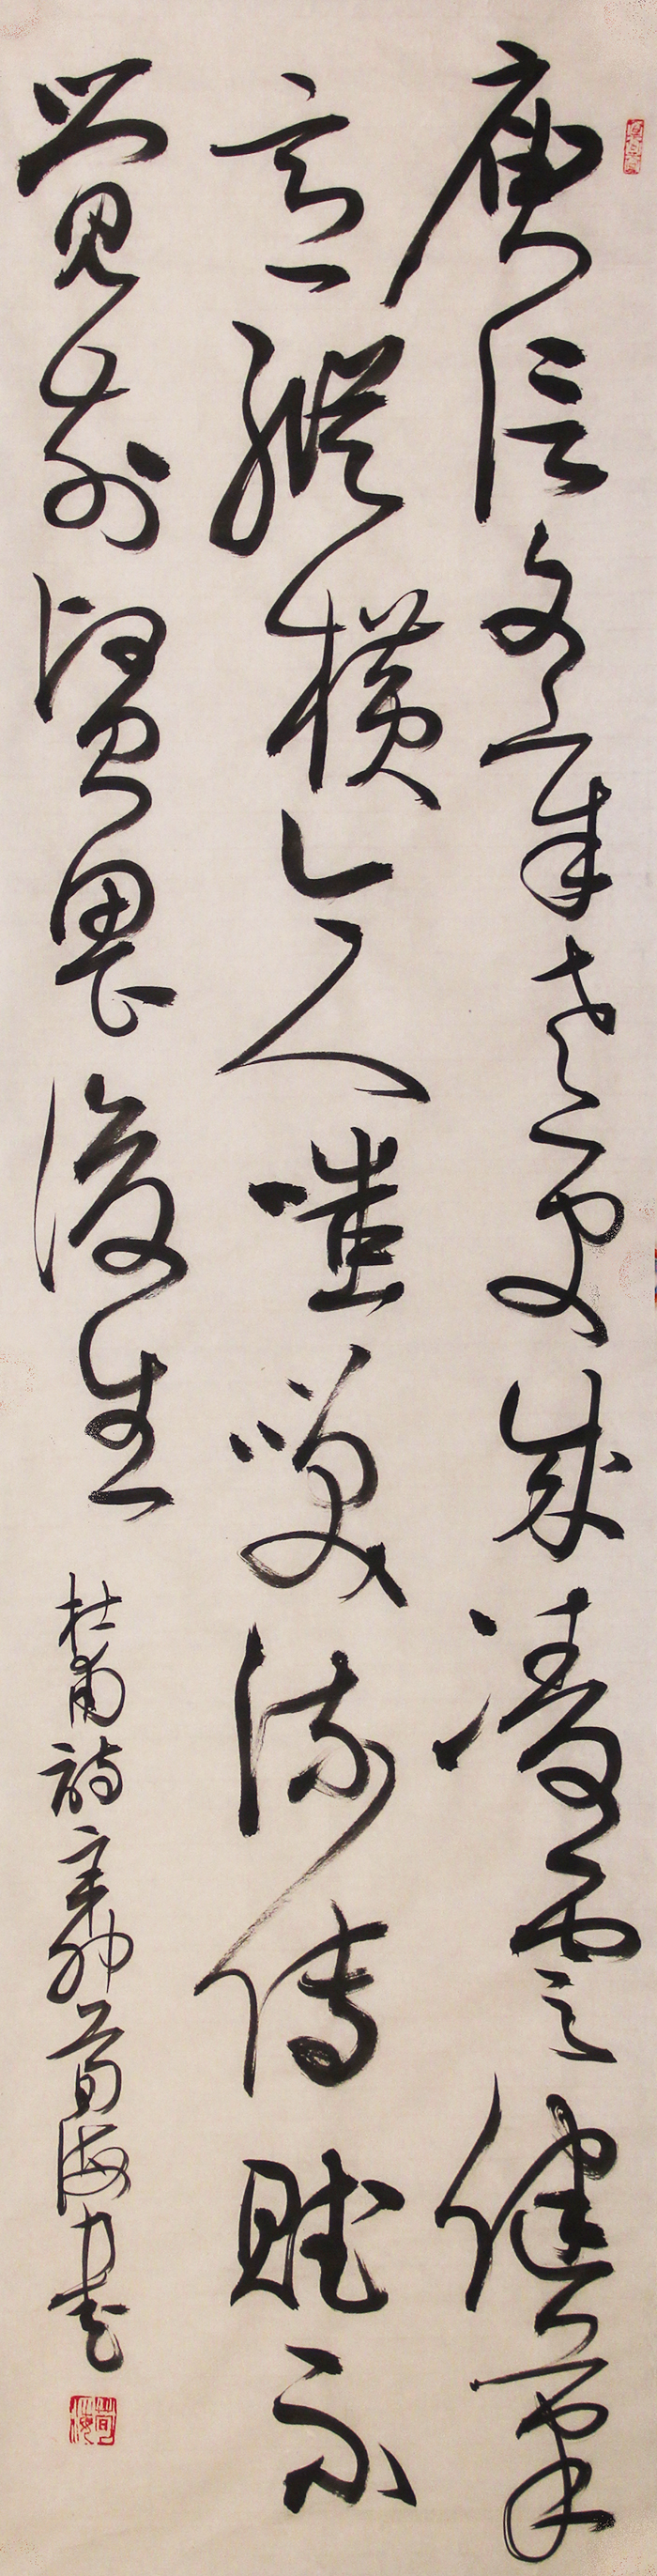 庾信文章老更成凌雲健筆
意縱橫今人嗤點流傳賦不
覺前賢畏後生
杜甫詩 辛卯荀海书
荀海